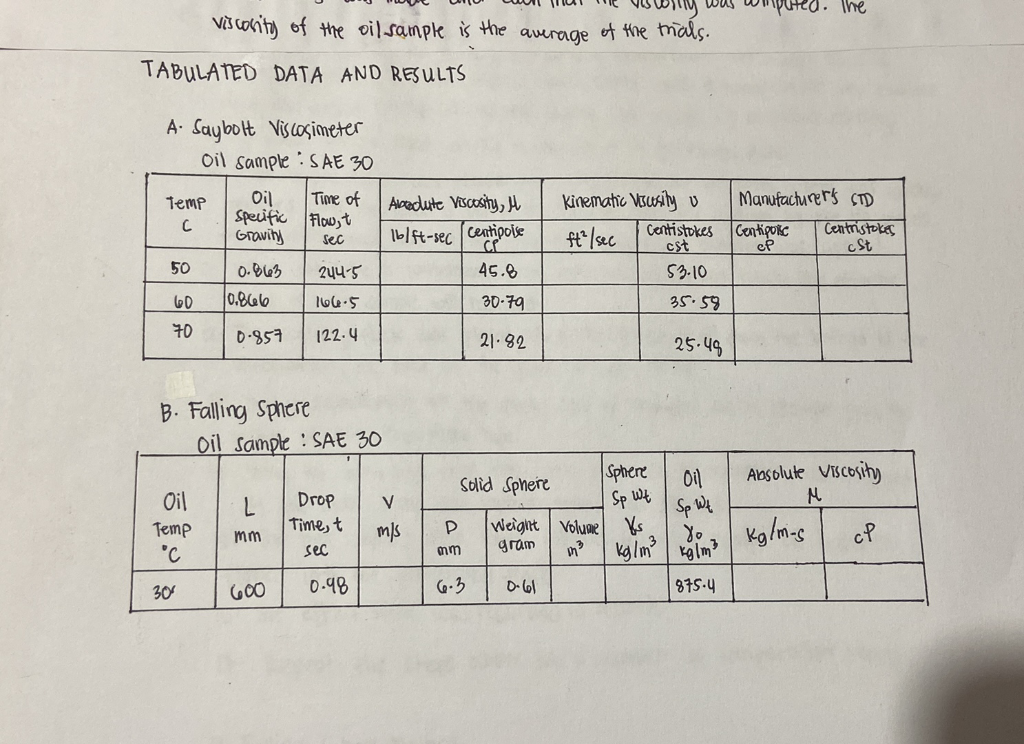 the viscosity was computed. The
viscosity of the oil sample is the average of the trials.
TABULATED DATA AND RESULTS
A. Saybolt Viscosimeter
Oil sample : SAE 30
Temp C | Oil Specific Gravity | Time of Flow, t sec | Absolute Viscosity, μ | Kinematic Viscosity υ | Manufacturer's STD
lb/ft-sec | Centipoise cP | ft²/sec | Centistokes cst | Centipoise cP | Centristokes cSt
50 | 0.863 | 244.5 | 45.8 | 53.10
60 | 0.866 | 166.5 | 30.79 | 35.58
70 | 0.857 | 122.4 | 21.82 | 25.48
B. Falling Sphere
Oil sample : SAE 30
Oil Temp °C | L mm | Drop Time, t sec | V m/s | Solid Sphere | Sphere Sp Wt γs kg/m³ | Oil Sp Wt γo kg/m³ | Absolute Viscosity μ
D mm | Weight gram | Volume m³ | kg/m-s | cP
30 | 600 | 0.98 | 6.3 | 0.61 | 875.4